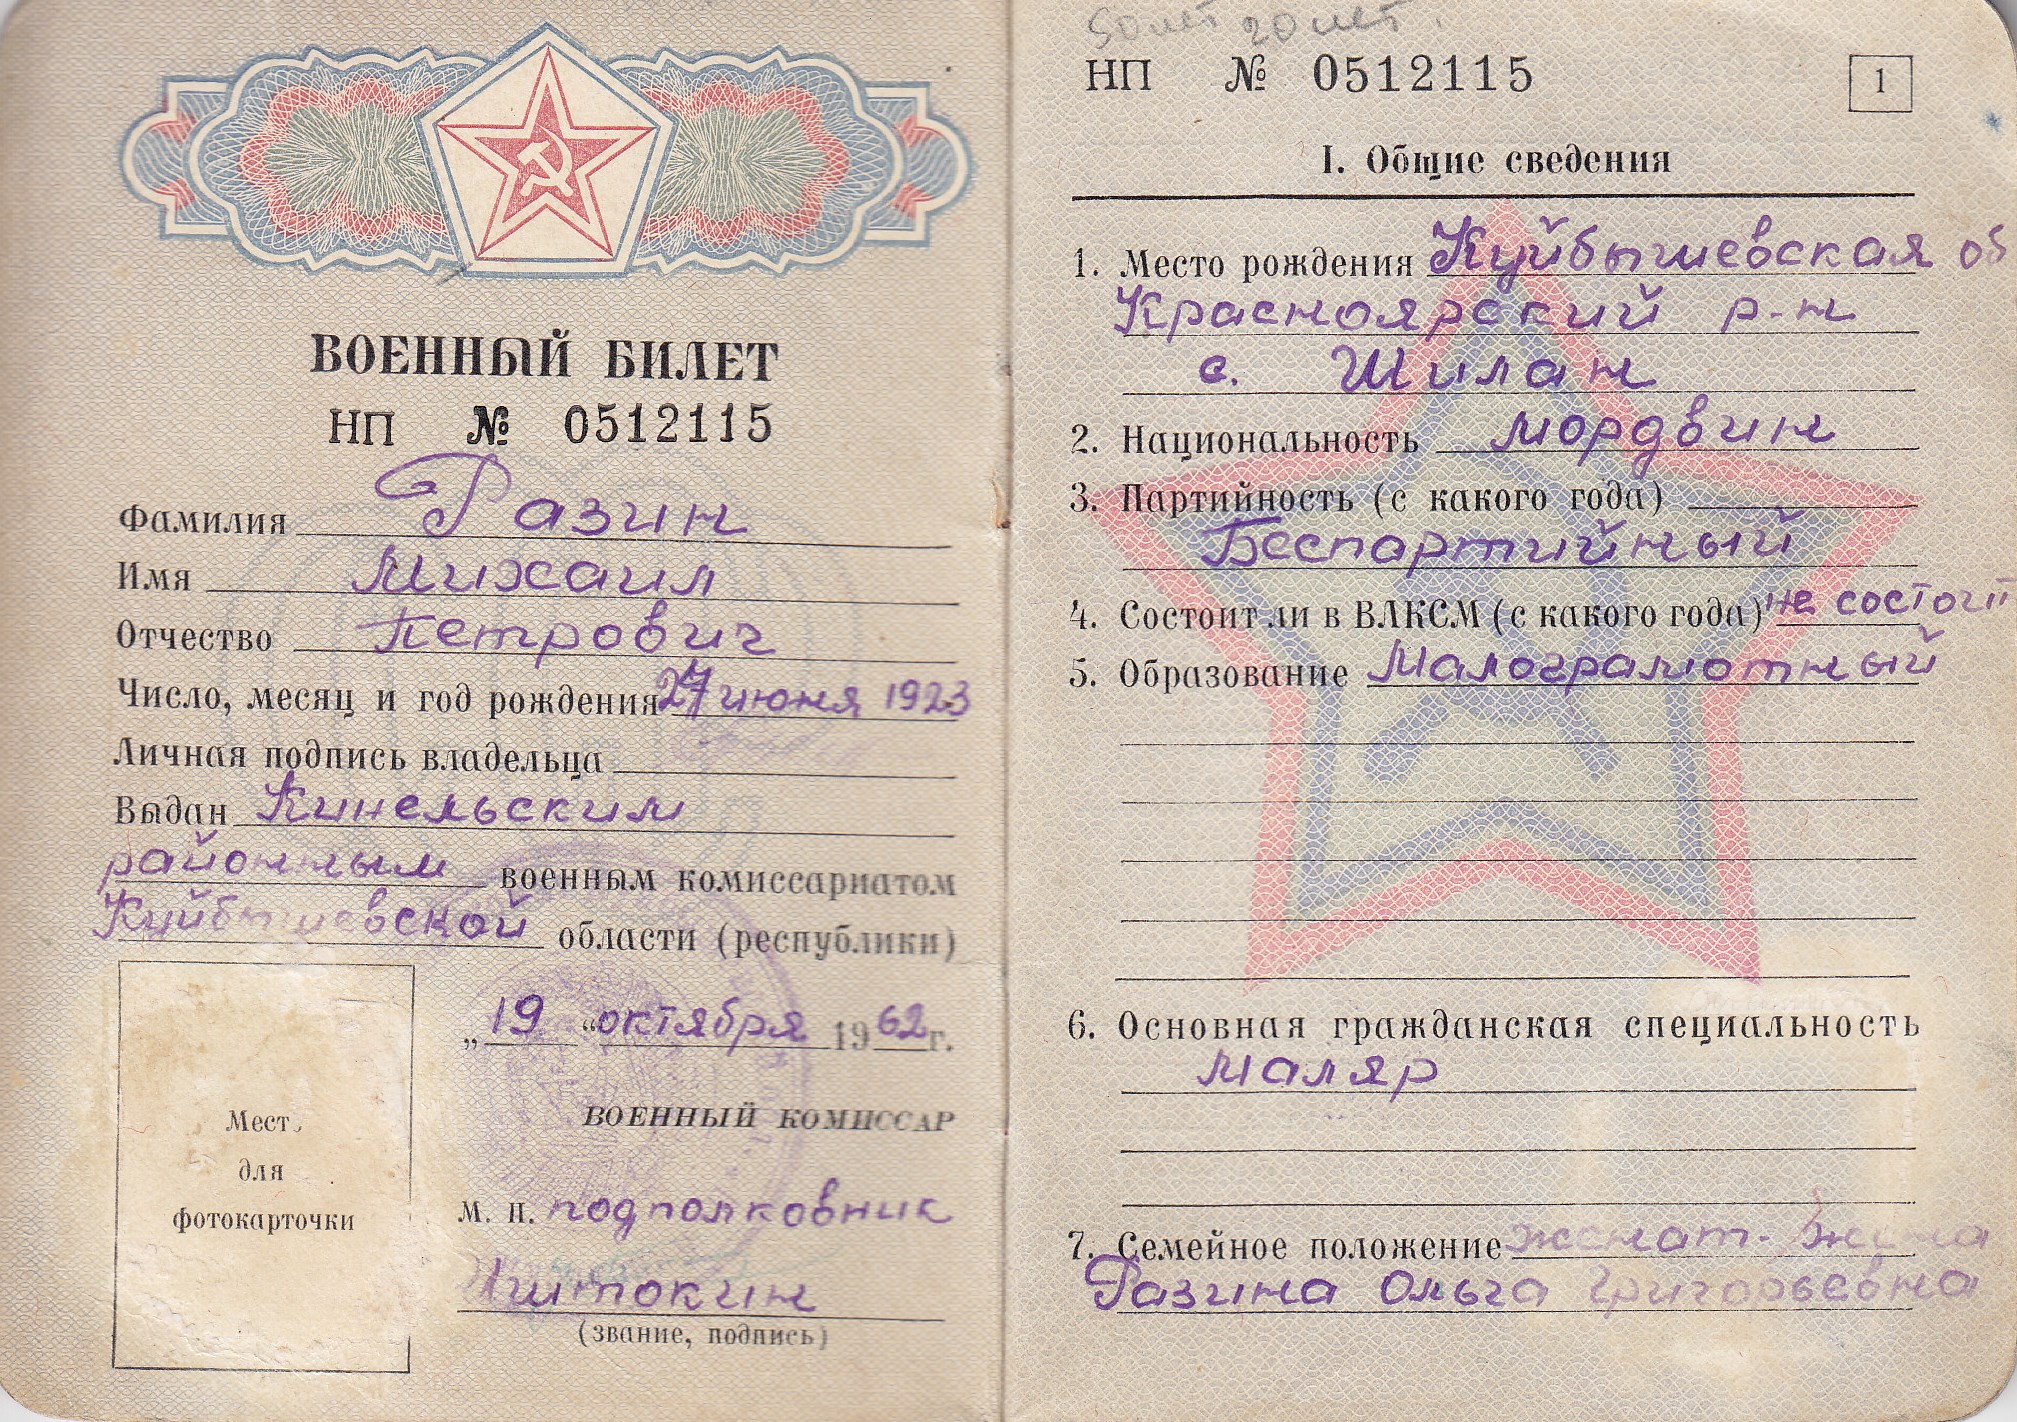 ВОЕННЫЙ БИЛЕТ
НП № 0512115
Фамилия Разин
Имя Михаил
Отчество Петрович
Число, месяц и год рождения 27 июня 1923
Личная подпись владельца
Выдан Кинельским
районным военным комиссариатом
Куйбышевской области (республики)
„19“ октября 1962 г.
ВОЕННЫЙ КОМИССАР
М. П. подполковник
(звание, подпись)
Мест
для
фотокарточки
50 лет 20 лет.
НП № 0512115
1
I. Общие сведения
1. Место рождения Куйбышевская об
Красноярский р-н
с. Шилан
2. Национальность мордвин
3. Партийность (с какого года)
Беспартийный
4. Состоит ли в ВЛКСМ (с какого года) не состоит
5. Образование Малограмотный
6. Основная гражданская специальность
Маляр
7. Семейное положение женат. жена
Разина Ольга Григорьевна